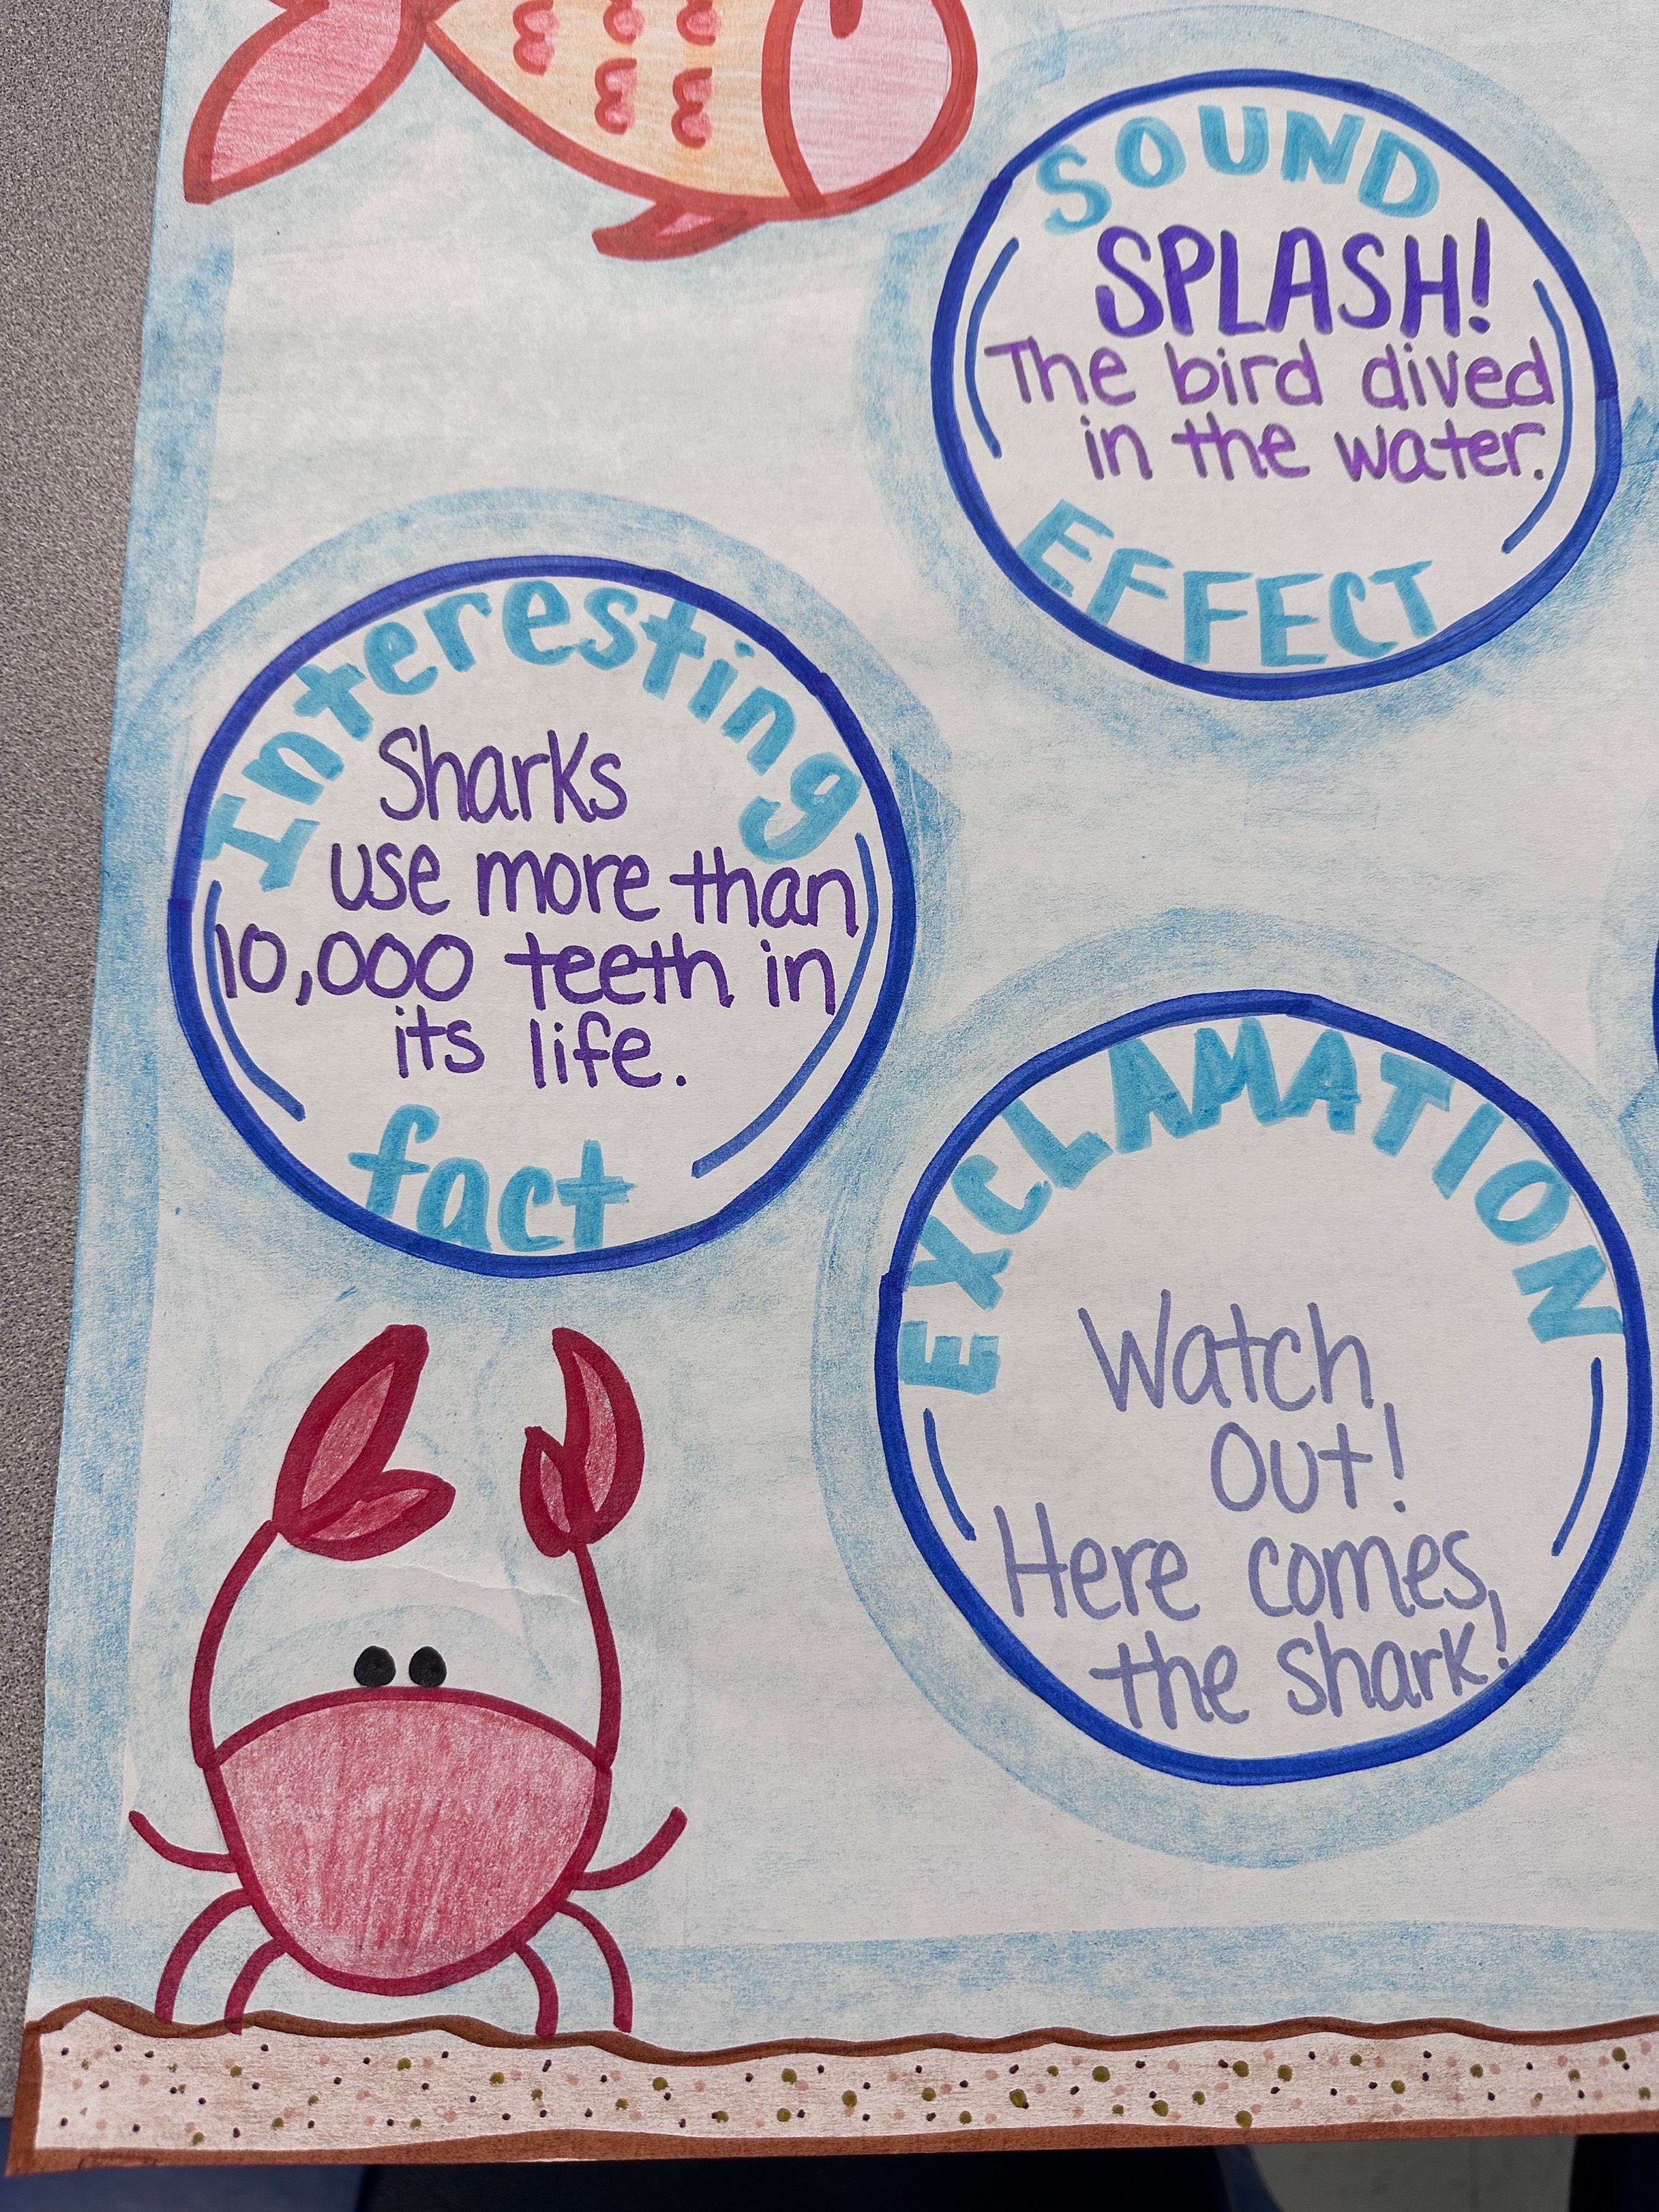 SOUND
SPLASH!
The bird dived
in the water.
EFFECT
Interesting
Sharks
use more than
10,000 teeth in
its life.
fact
EXCLAMATION
Watch
Out!
Here comes,
the shark!